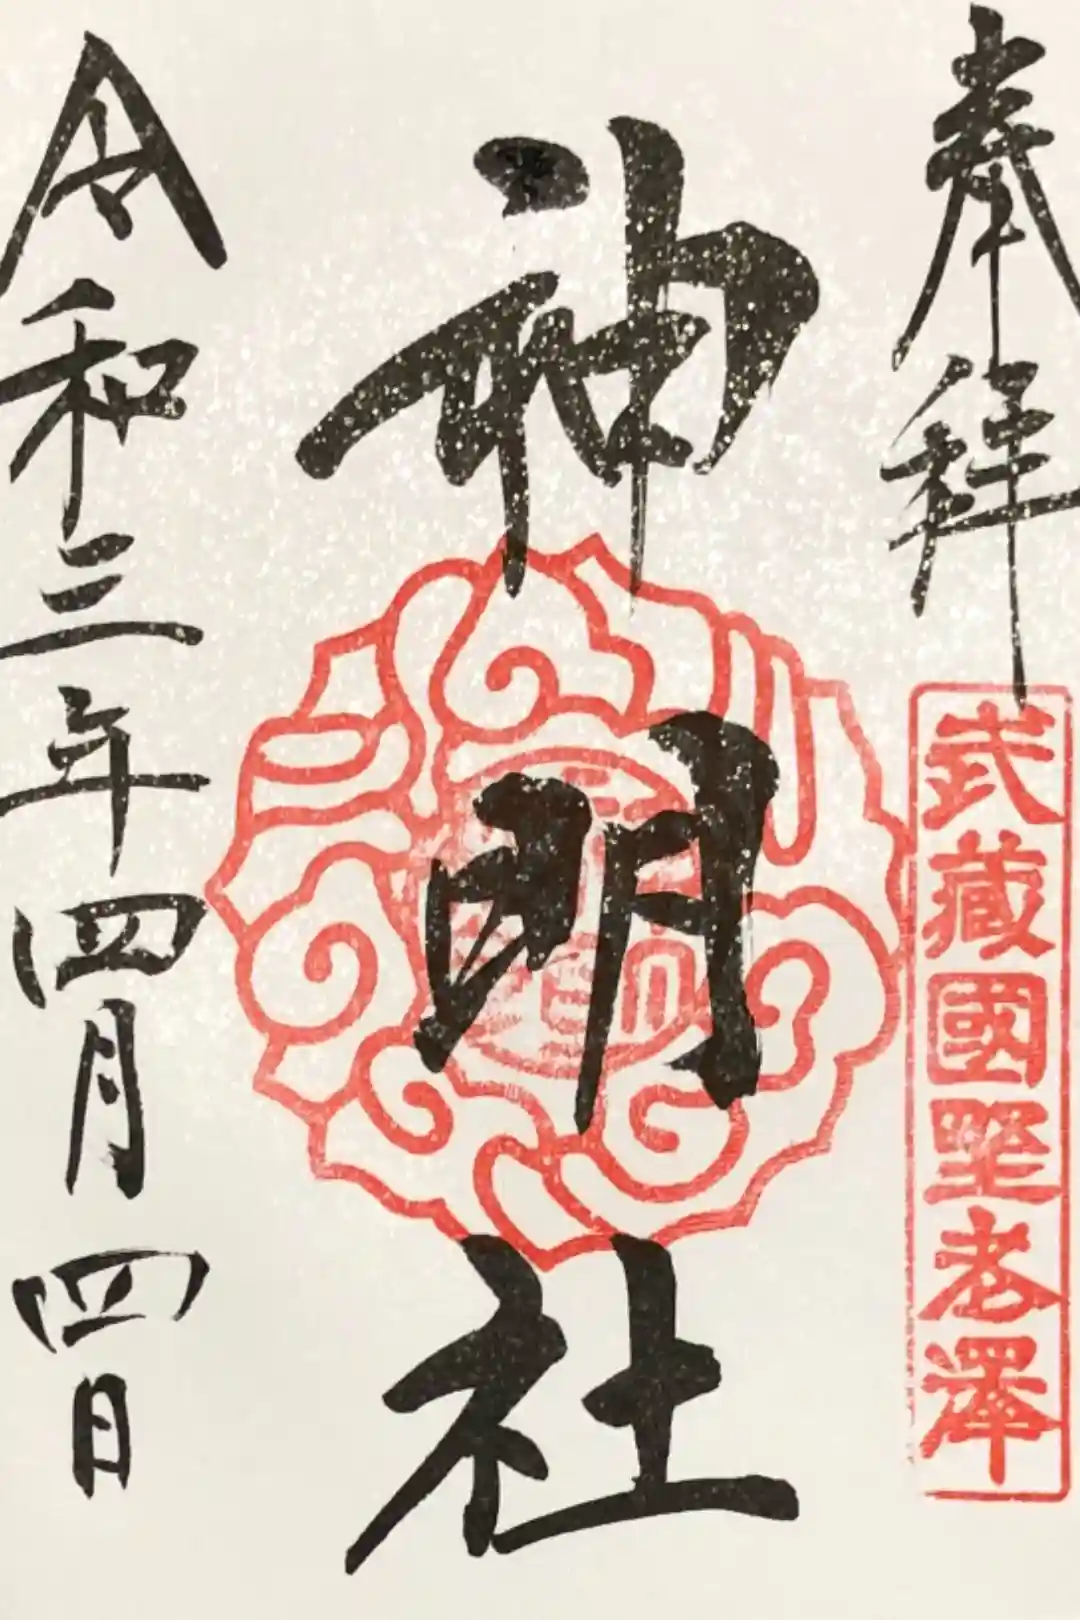 奉拝
武藏國野老澤
神明社
令和三年四月四日